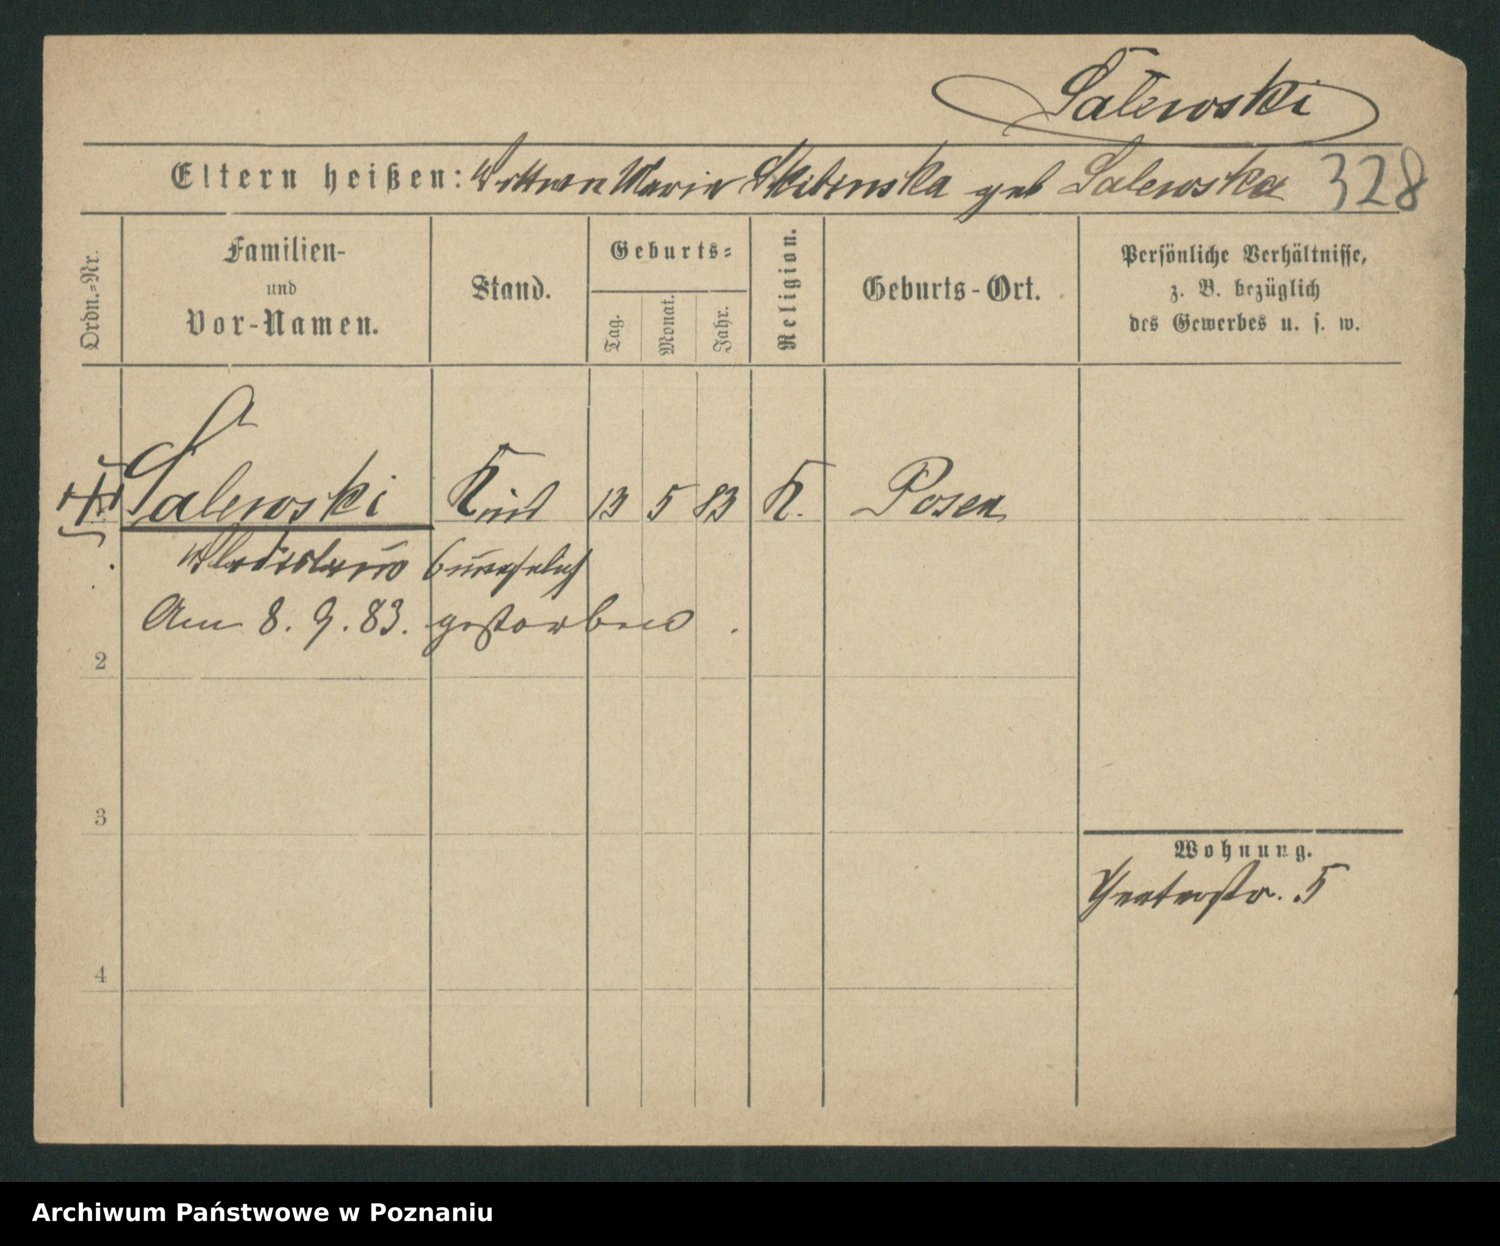 Salewski
Eltern heißen: Wittwe Maria Skibinska geb Salewska 328
Ordn.-Nr.
Familien-
und
Vor-Namen.
Stand.
Geburts-
Tag.
Monat.
Jahr.
Religion.
Geburts-Ort.
Persönliche Verhältnisse,
z. B. bezüglich
des Gewerbes u. s. w.
Salewski Kind 13 5 83 K. Posen
Wladislaus (unehelich
Am 8. 9. 83. gestorben.
2
3
4
Wohnung.
5
Archiwum Państwowe w Poznaniu